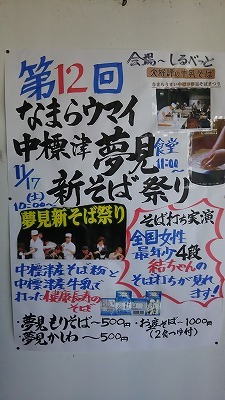 会場〜しるべっと
大好評の牛乳そば
第12回
なまらウマイ
中標津 夢見
食堂
11:00〜
11/17
(土)
10:00〜
新そば祭り
夢見新そば祭り
そば打ち実演
全国女性
最年少4段
結ちゃんの
そば打ちが見れ
ます!
中標津産そば粉と
中標津産牛乳で
打った健康長寿の
そば
夢見もりそば〜500円
夢見かしわ〜500円
お庭そば〜1000円
(2食つゆ付)